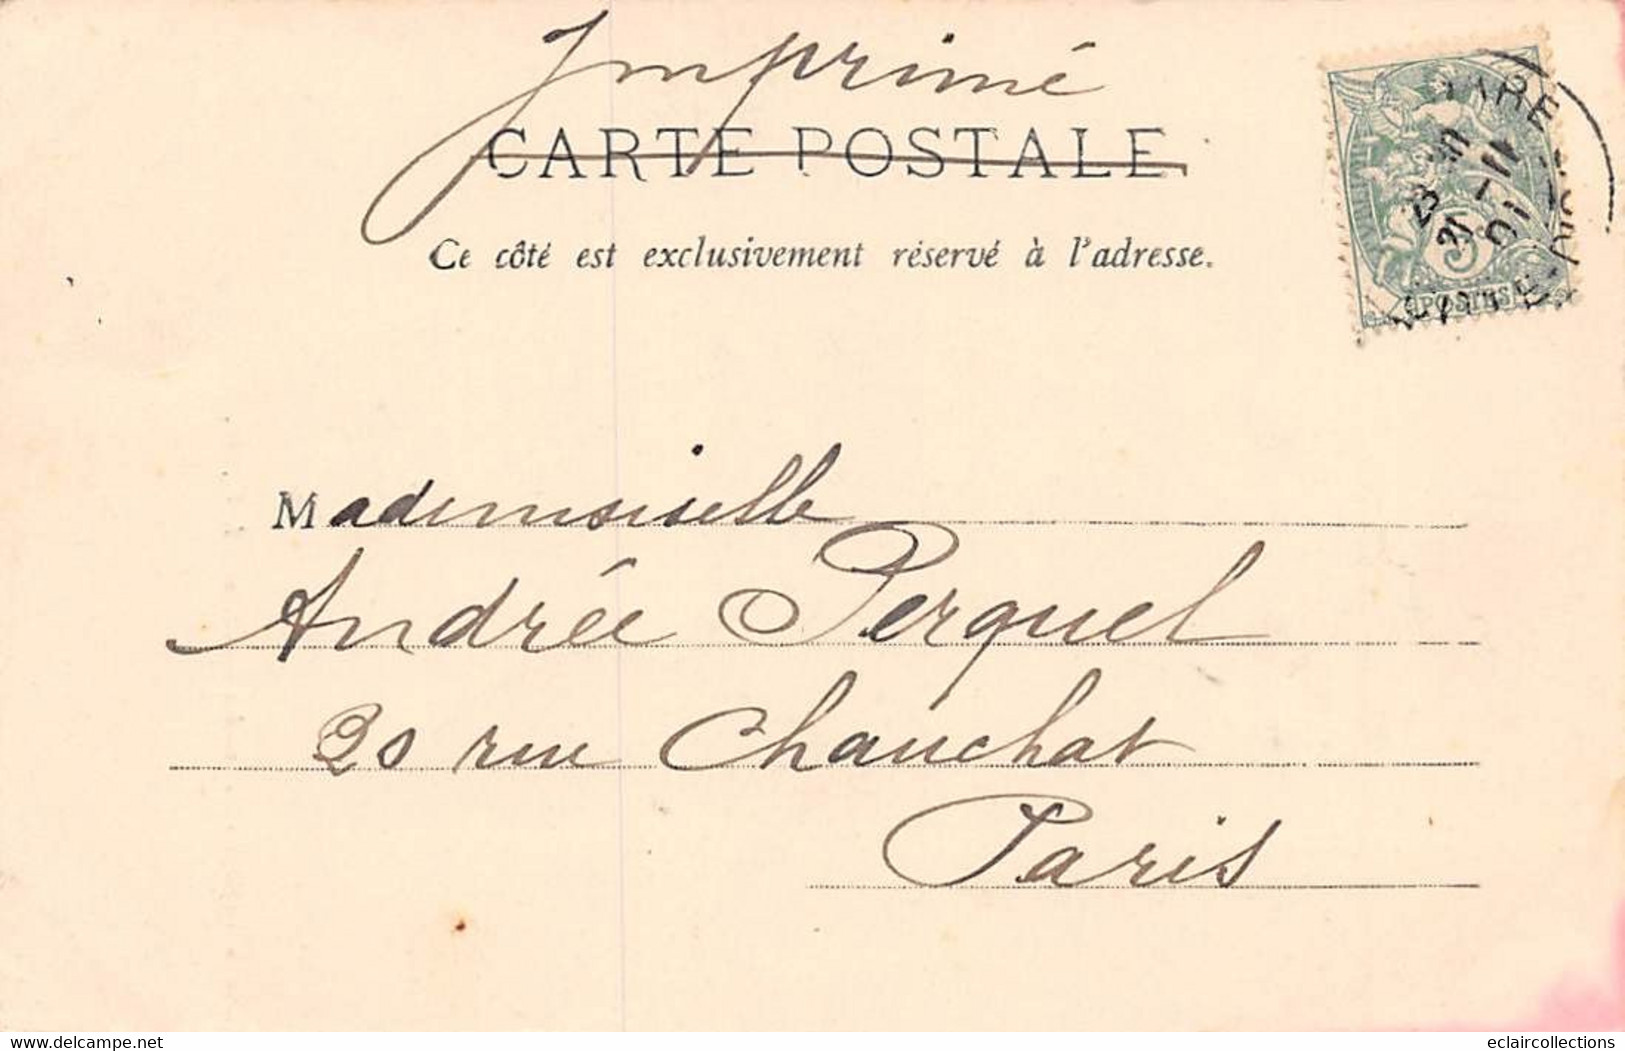 Imprimé
CARTE POSTALE
Ce côté est exclusivement réservé à l'adresse.
5c
POSTES
Mademoiselle
Andrée Perquel
30 rue Chauchat
Paris
eclaircollections